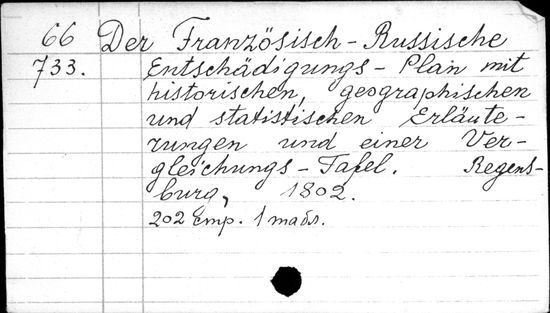 66 Der Französisch-Russische
733. Entschädigungs-Plan mit
historischen, geographischen
und statistischen Erläute-
rungen und einer Ver-
gleichungs-Tafel. Regens-
burg, 1802.
202 стр. 1 табл.